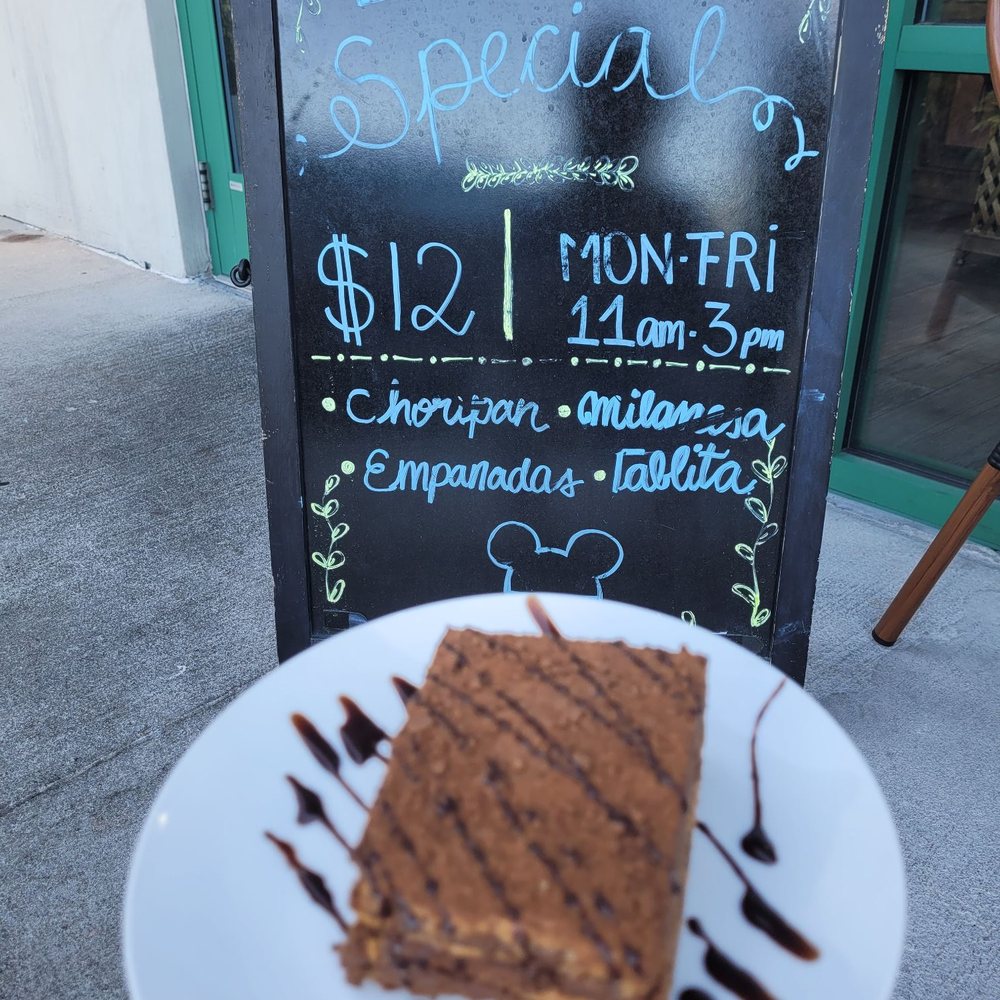 Special
$12 | MON-FRi
11am-3pm
• Choripan • Milanesa
• Empanadas • Tablita